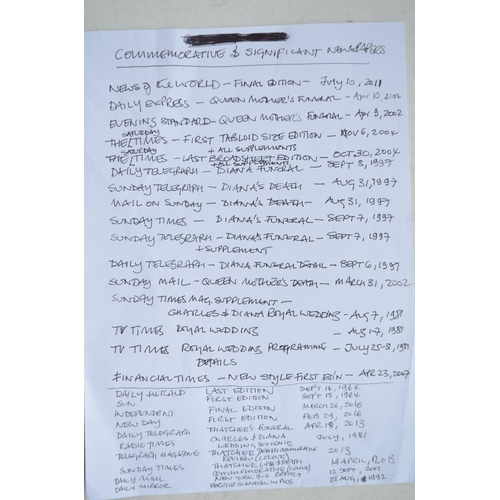 COMMEMORATIVE & SIGNIFICANT NEWSPAPERS
NEWS of the WORLD - FINAL EDITION - July 10, 2011
DAILY EXPRESS - QUEEN MOTHER'S FUNERAL - Apr 10, 2002
EVENING STANDARD - QUEEN MOTHER'S FUNERAL - Apr 9, 2002
THE SATURDAY TIMES - FIRST TABLOID SIZE EDITION - NOV 6, 2004
+ ALL SUPPLEMENTS
THE SATURDAY TIMES - LAST BROADSHEET EDITION - OCT 30, 2004
+ ALL SUPPLEMENTS
DAILY TELEGRAPH - DIANA FUNERAL - SEPT 8, 1997
SUNDAY TELEGRAPH - DIANA'S DEATH - AUG 31, 1997
MAIL ON SUNDAY - DIANA'S DEATH - AUG 31, 1997
SUNDAY TIMES - DIANA'S FUNERAL - SEPT 7, 1997
SUNDAY TELEGRAPH - DIANA'S FUNERAL - SEPT 7, 1997
+ SUPPLEMENT
DAILY TELEGRAPH - DIANA FUNERAL DETAIL - SEPT 6, 1997
SUNDAY MAIL - QUEEN MOTHER'S DEATH - MARCH 31, 2002
SUNDAY TIMES MAG. SUPPLEMENT -
CHARLES & DIANA ROYAL WEDDING - AUG 2, 1981
TV TIMES ROYAL WEDDING - AUG 1-7, 1981
TV TIMES ROYAL WEDDING PROGRAMME - JULY 25-31, 1981
DETAILS
FINANCIAL TIMES - NEW STYLE FIRST ED'N - APR 23, 2007
DAILY HERALD LAST EDITION SEPT 14, 1964
SUN FIRST EDITION SEPT 15, 1964
INDEPENDENT FINAL EDITION MARCH 26, 2016
NEW DAY FIRST EDITION FEB 29, 2016
DAILY TELEGRAPH THATCHER'S FUNERAL APR 18, 2013
RADIO TIMES CHARLES & DIANA JULY, 1981
WEDDING SOUVENIR
TELEGRAPH MAGAZINE THATCHER DEATH COMMEMORATIVE 2013
REVIEW (COLOUR)
SUNDAY TIMES THATCHER LIFE & DEATH 14 APRIL, 2013
COMMEMORATIVE (COLOUR)
DAILY MAIL NEW YORK 9-11 REPORT 12 SEPT, 2001
DAILY MIRROR 1992